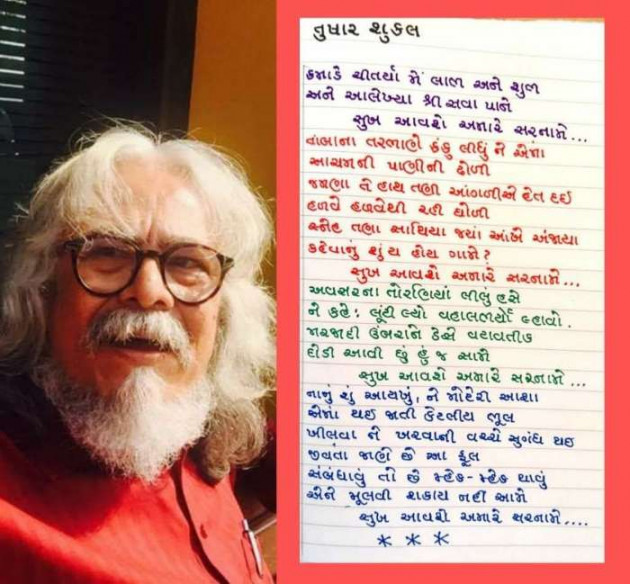 તુષાર શુકલ
કમાડે ચીતર્યા મેં લાભ અને શુભ
અને આલેખ્યા શ્રી સવા પાને
સુખ આવશે અમારે સરનામે...
તાંબાના તરભાણે કંકુ લીધું ને એમાં
આચમની પાણીની ઢોળી
જમણા તે હાથ તણી આંગળીએ હેત દઈ
હળવે હળવેથી રહી ઘોળી
સ્નેહ તણા સાથિયા જ્યાં આંખે અંજાયા
કહેવાનું શું ય હોય ગામે?
સુખ આવશે અમારે સરનામે...
અવસરના તોરણિયાં લીલું હસે
ને કહે: લૂંટી લ્યો વહાલભર્યો લ્હાવો.
મરજાદી ઉંબરાને ઠેસે વટાવતીક
દોડી આવી છું હું જ સામે
સુખ આવશે અમારે સરનામે...
નાનું શું આયખું, ને મોટેરી આશા
એમાં થઈ જાતી કેટલીય ભૂલ
ખીલવા ને ખરવાની વચ્ચે સુગંધ થઈ
જીવતા જાણે છે આ ફૂલ
સંબંધાવું તો છે મ્હેક-મ્હેક થાવું
એને મૂલવી શકાય નહીં દામે
સુખ આવશે અમારે સરનામે....